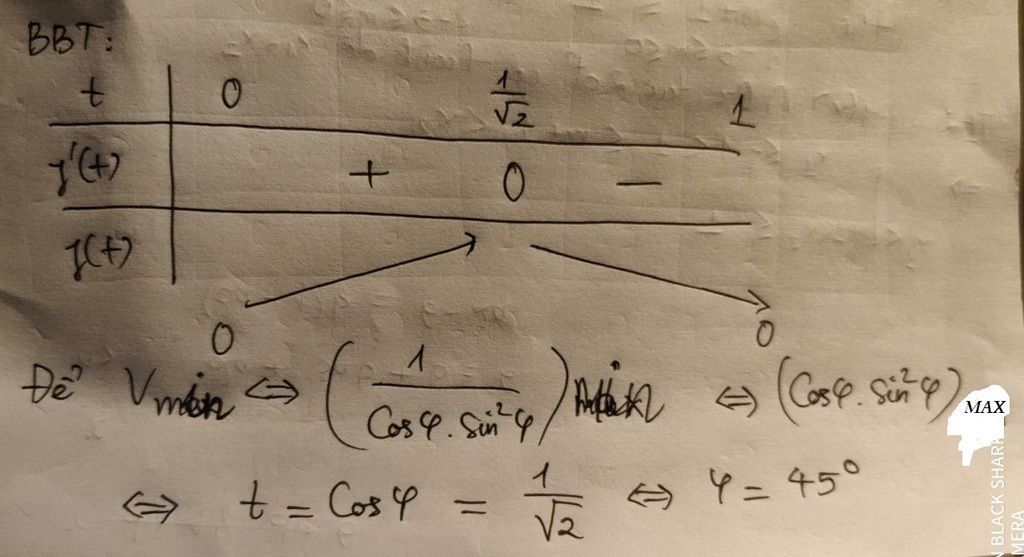 BBT:
t 0 1/√2 1
y'(t) + 0 −
y(t) 0 ↗ ↘ 0
Để V min ⇔ (1/(Cosφ. Sin²φ)) min ⇔ (Cosφ. Sin²φ) MAX
⇔ t = Cosφ = 1/√2 ⇔ φ = 45°
N BLACK SHARK
MERA